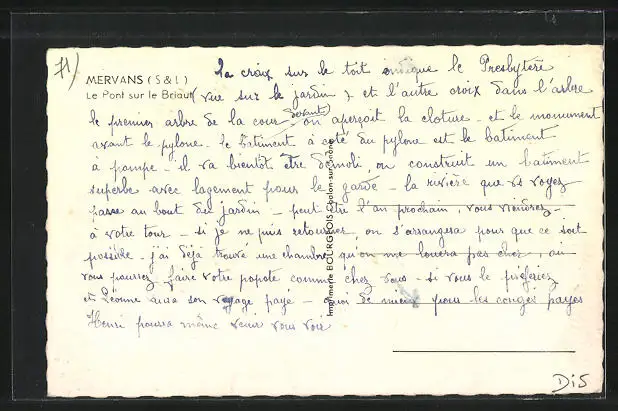 71)
MERVANS (S & L)
Le Pont sur le Briaut
La croix sur le toit indique le Presbytère
(vue sur le jardin) et l'autre croix dans l'arbre
le premier arbre de la cour devant on aperçoit la cloture - et le monument
avant le pylone - le batiment à coté du pylone est le batiment
à pompe - il va bientôt être démoli on construit un batiment
superbe avec logement pour le garde - la rivière que vs voyez
passe au bout du jardin - peut être l'an prochain, vous viendrez
à votre tour - si je ne puis retourner, on s'arrangera pour que ce soit
possible - j'ai déjà trouvé une chambre qu'on me louera pas cher,
vous pourrez faire votre popote comme chez vous - si vous le préferiez
et Léonne aura son voyage payé - quoi de mieux pour les congés payés
Henri pourra même venir vous voir
Imprimerie BOURGEOIS Chalon-sur-Saône
Di5